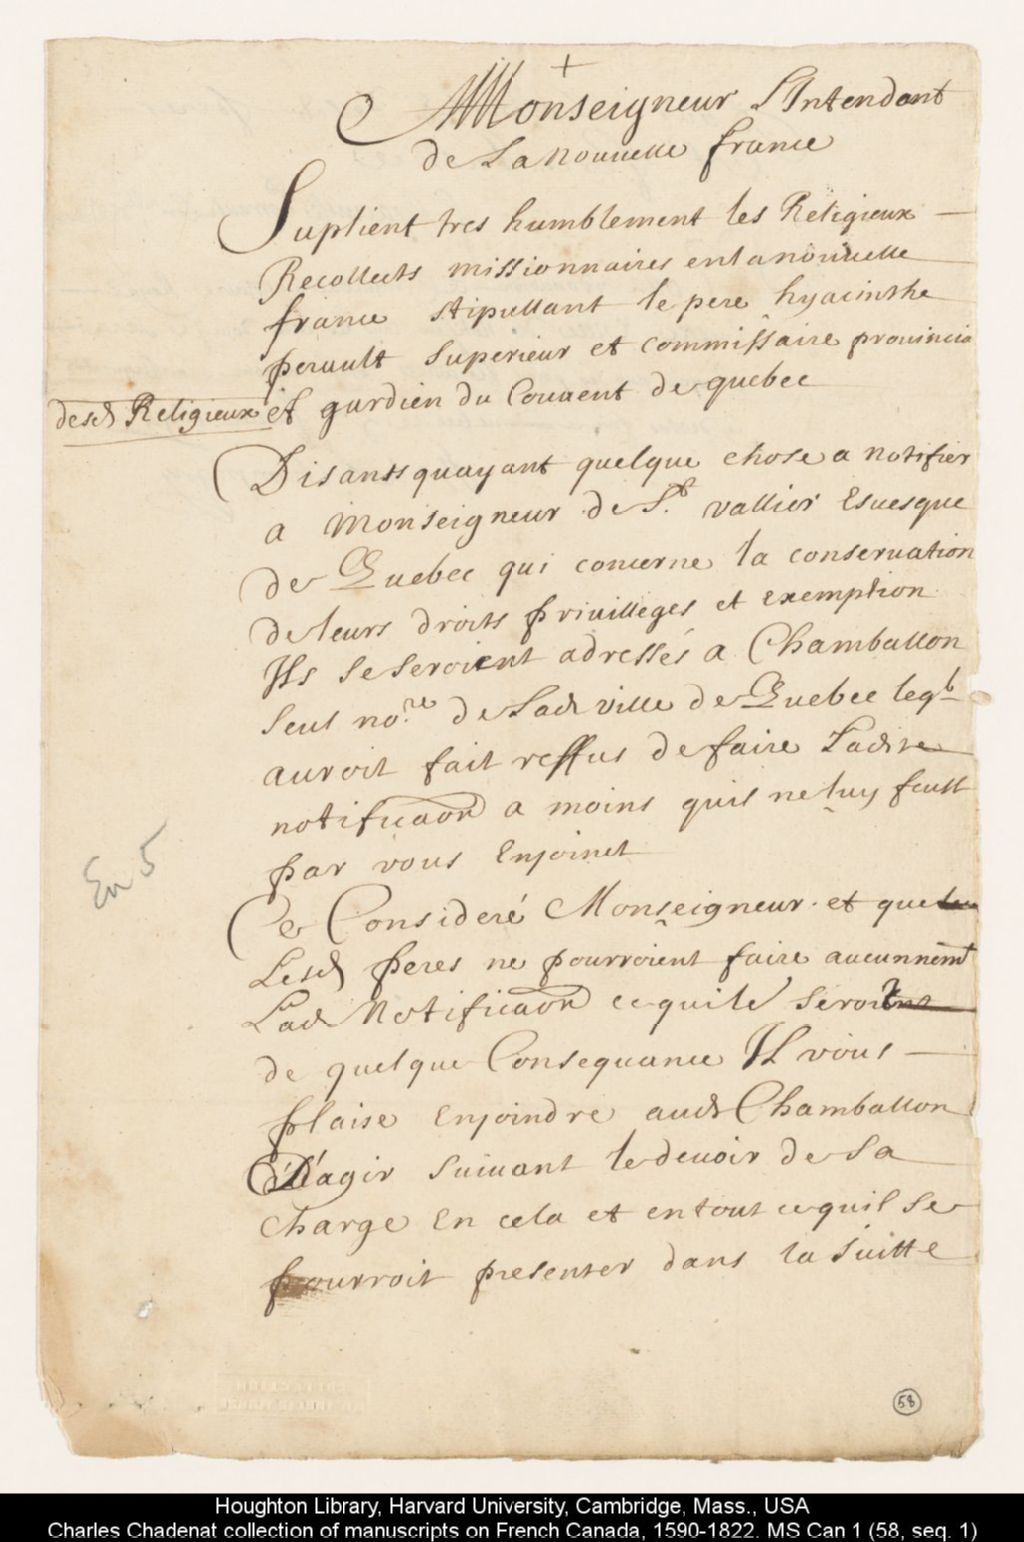 +
A Monseigneur L'Intendant
de La nouuelle france
Suplient tres humblement les Religieux
Recollects missionnaires en la nouuelle
france stipullant le pere hyacinthe
perault superieur et commissaire prouincia
desd Religieux et gardien du Couuent de quebec
Disants quayant quelque chose a notifier
a Monseigneur de St. vallier Esuesque
de Quebec qui concerne la conseruation
de leurs droits priuilleges et exemption
Ils se seroient adressés a Chamballon
seul nore. de Lad ville de Quebec leql
auroit fait reffus de faire Ladite
notificaon a moins quil ne luy feust
par vous Enjoinct
En 5
Ce Consideré Monseigneur et que
Lesd peres ne pourroient faire aucunnemt
Lad Notificaon ce quile seroit
de quelque Consequance Il vous
plaise enjoindre aud Chamballon
D'agir suiuant le deuoir de sa
Charge en cela et en tout ce quil se
pourroit presenter dans la suitte
58
Houghton Library, Harvard University, Cambridge, Mass., USA
Charles Chadenat collection of manuscripts on French Canada, 1590-1822. MS Can 1 (58, seq. 1)